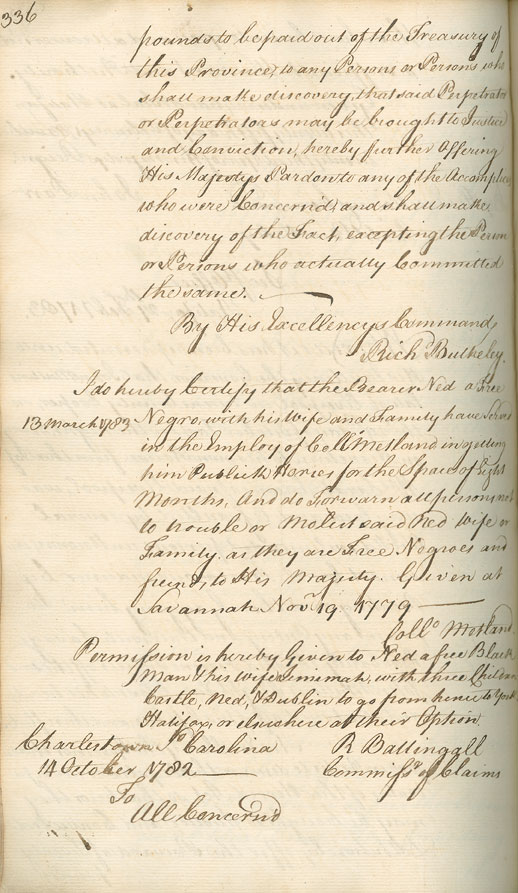 336
pounds to be paid out of the Treasury of
this Province, to any Person or Persons who
shall make discovery, that said Perpetrator
or Perpetrators may be brought to Justice
and Conviction, hereby further Offering
His Majestys Pardon to any of the Accomplices
who were Concern'd, and shall make
discovery of the Fact, excepting the Person
or Persons who actually Committed
the same.
By His Excellencys Command,
Richd. Bulkeley.
I do hereby Certify that the Bearer Ned a Free
13 March 1783 Negro, with his Wife and Family have Served
in the Employ of Coll. Metland in getting
him Publick Horses for the Space of Eight
Months, And do Forwarn all persons not
to trouble or Molest said Ned Wife or
Family. as they are Free Negroes and
friends to His Majesty. Given at
Savannah Novr. 19 1779
Collo. Metland.
Permission is hereby Given to Ned a free Black
Man & his Wife Jemimah, with three Children
Castle, Ned, & Dublin to go from hence to York
Halifax, or elsewhere at their Option.
Charlestown So. Carolina R Ballingall
14 October 1782 Commissr. of Claims
To
All Concern'd